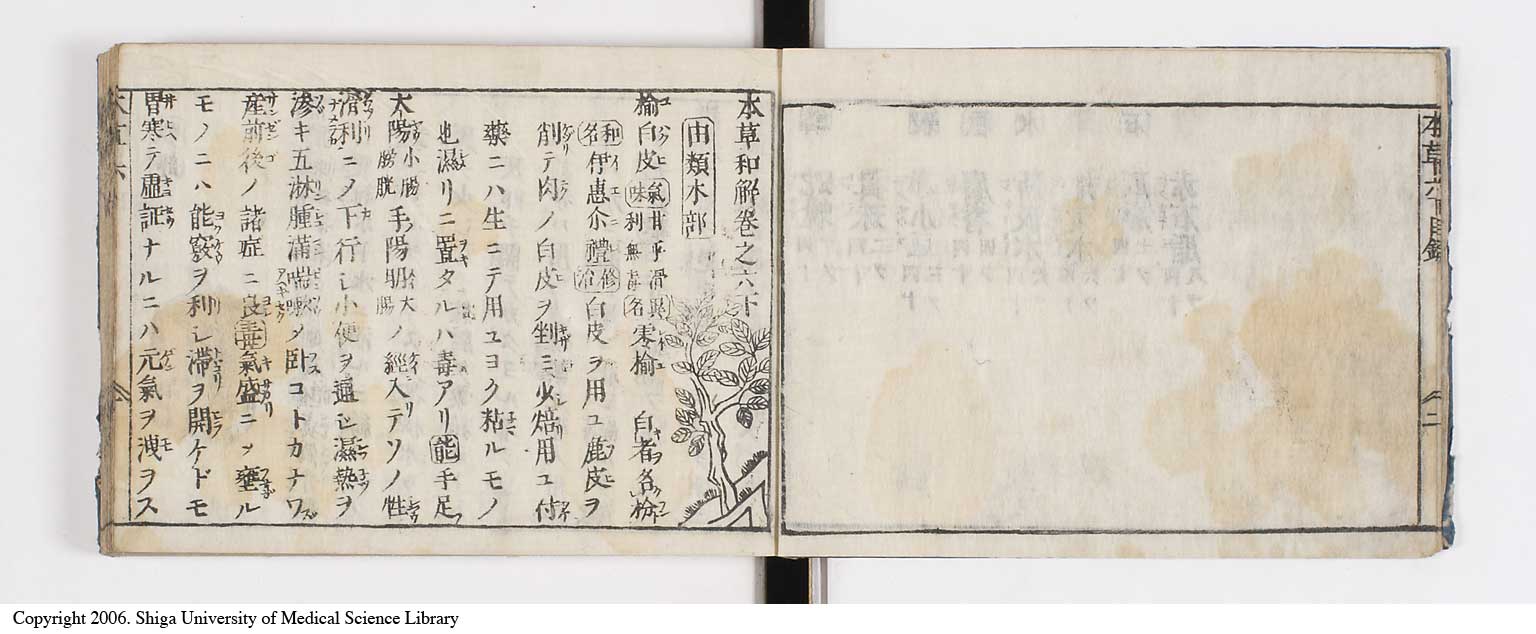 本草六下目録
二
本草和解卷之六下
由類木部
榆白皮 氣味 甘平滑利無毒 異名 零榆 白者名枌
和名 伊惠介禮 修治 白皮ヲ用ユ麁皮ヲ
削テ肉ノ白皮ヲ剉ミ火焙用ユ付
藥ニハ生ニテ用ユヨク粘ルモノ
也濕リニ置タルハ毒アリ 能 手足
太陽 小腸 膀胱 手陽明 大腸 ノ經入テソノ性
滑利ニメ下行シ小便ヲ通シ濕熱ヲ
滲キ五淋腫滿喘嗽メ臥コトカナワズ
產前後ノ諸症ニ良 毒 氣盛ニメ壅ル
モノニハ能竅ヲ利シ滯ヲ開ケドモ
胃寒テ虛証ナルニハ元氣ヲ洩ヲス
Copyright 2006. Shiga University of Medical Science Library